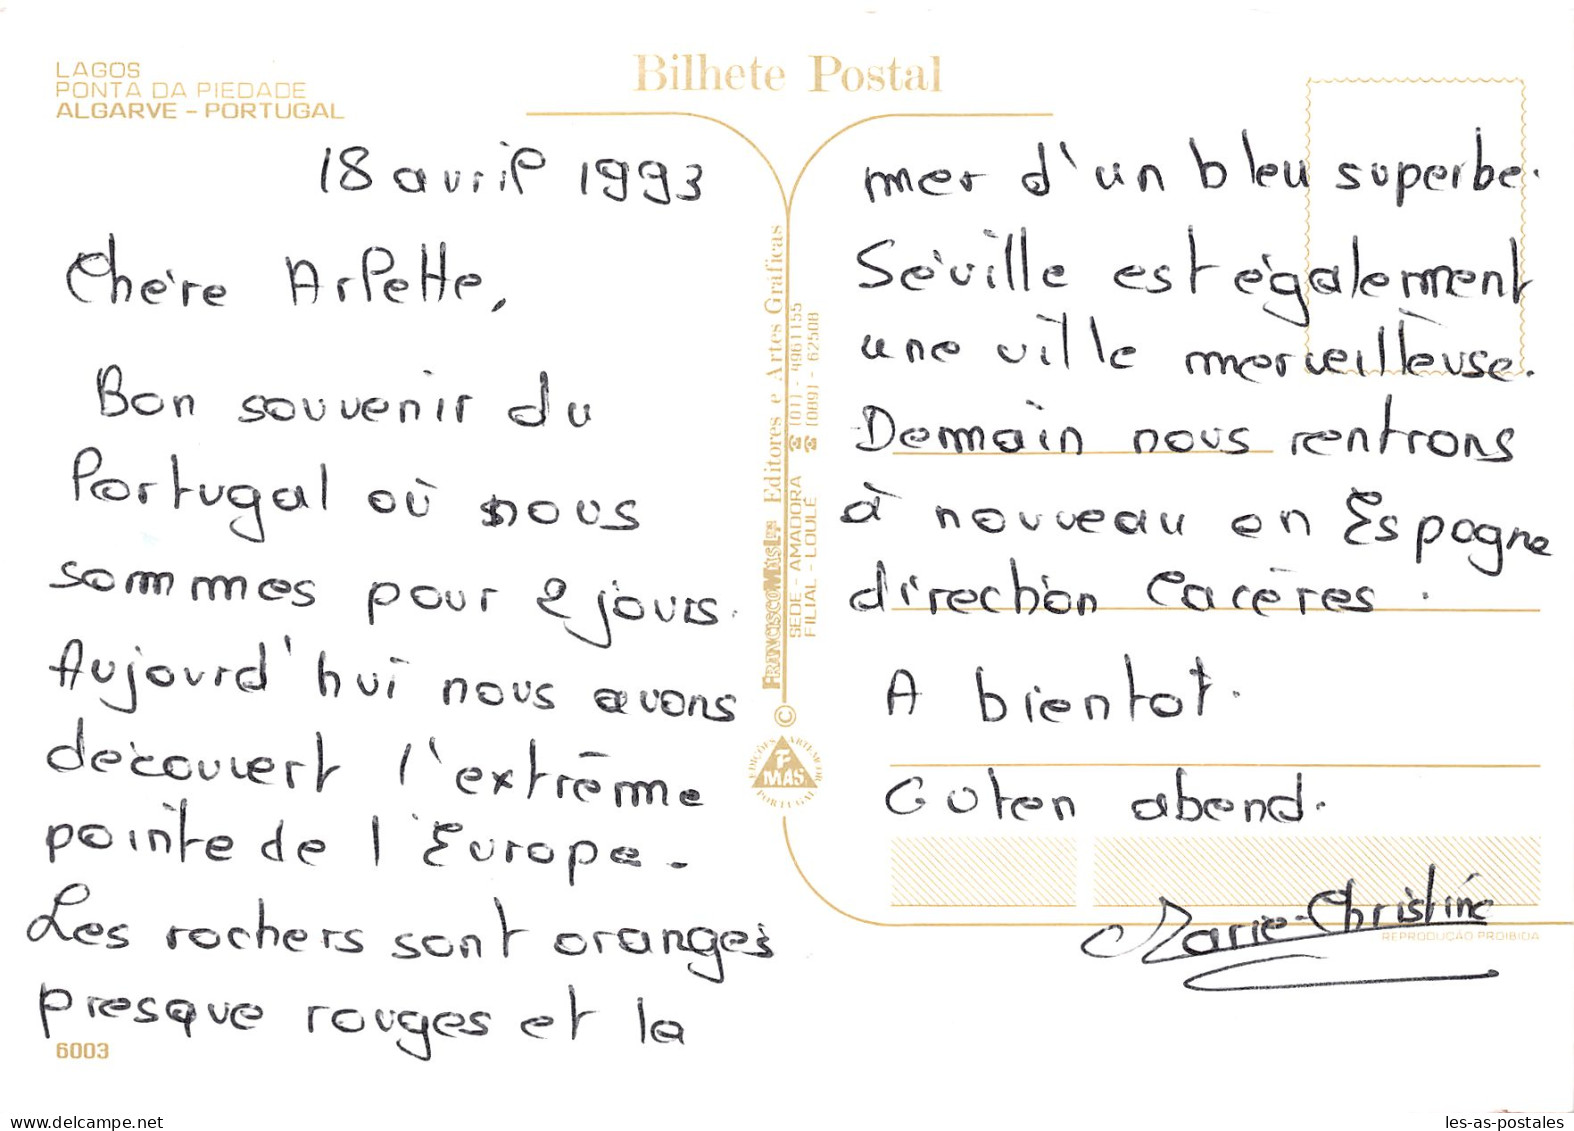 LAGOS
PONTA DA PIEDADE
ALGARVE – PORTUGAL
Bilhete Postal
18 avril 1993
Chère Arlette,
Bon souvenir du
Portugal où nous
sommes pour 2 jours.
Aujourd'hui nous avons
découvert l'extrême
pointe de l'Europe.
Les rochers sont oranges
presque rouges et la
6003
FRANCISCO MAS Lda Editores e Artes Gráficas
SEDE - AMADORA ☎ (01) - 4961155
FILIAL - LOULÉ ☎ (089) - 62508
©
EDIÇÕES ARTEMCOR
F
MAS
PORTUGAL
mer d'un bleu superbe.
Séville est également
une ville merveilleuse.
Demain nous rentrons
à nouveau en Espagne
direction Cacères.
A bientot.
Guten abend.
Marie-Christine
REPRODUÇÃO PROIBIDA
delcampe.net
les-as-postales